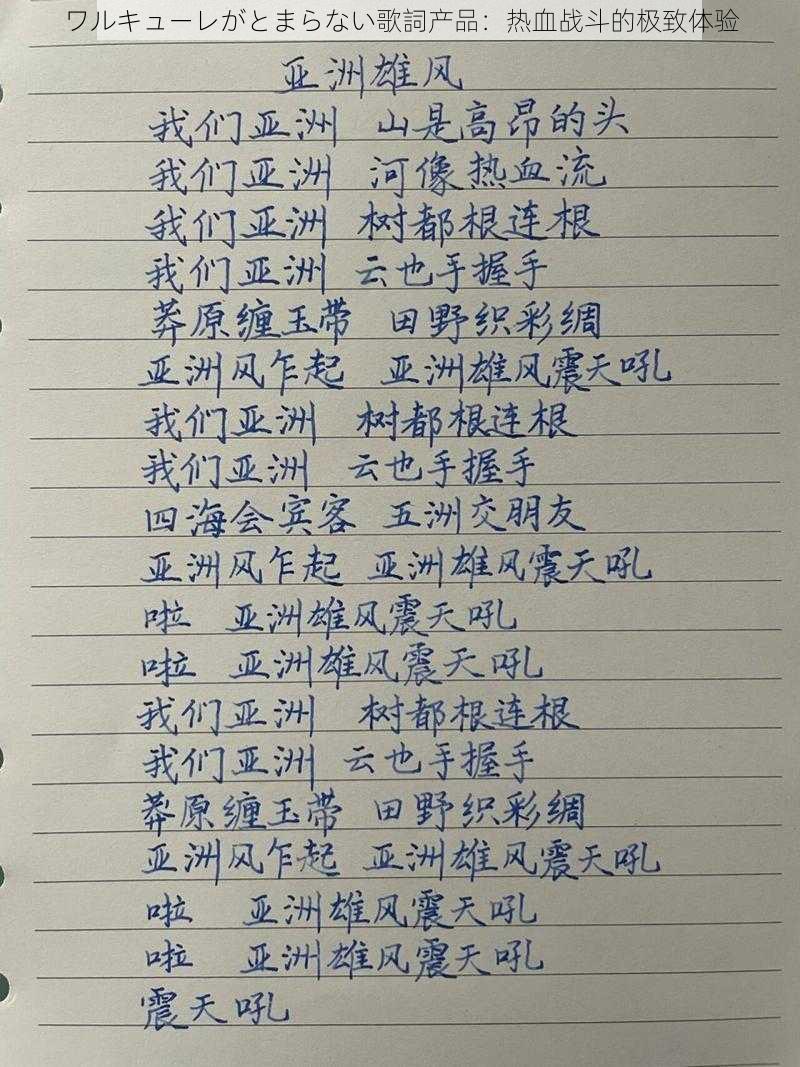 ワルキューレがとまらない歌詞产品：热血战斗的极致体验
亚洲雄风
我们亚洲 山是高昂的头
我们亚洲 河像热血流
我们亚洲 树都根连根
我们亚洲 云也手握手
莽原缠玉带 田野织彩绸
亚洲风乍起 亚洲雄风震天吼
我们亚洲 树都根连根
我们亚洲 云也手握手
四海会宾客 五洲交朋友
亚洲风乍起 亚洲雄风震天吼
啦 亚洲雄风震天吼
啦 亚洲雄风震天吼
我们亚洲 树都根连根
我们亚洲 云也手握手
莽原缠玉带 田野织彩绸
亚洲风乍起 亚洲雄风震天吼
啦 亚洲雄风震天吼
啦 亚洲雄风震天吼
震天吼